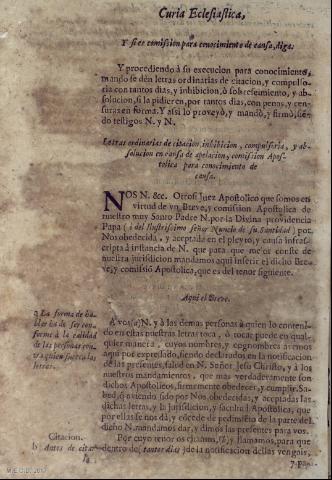 Curia Eclesiastica,
Y si es comission para conocimiento de causa, diga:
Y procediendo à su execucion para conocimiento,
mandò se dèn letras ordinarias de citacion, y compulso-
ria con tantos dias, y inhibicion, ò sobreseimiento, y ab-
solucion, si la pidieren, por tantos dias, con penas, y cen-
suras en forma. Y assi lo proveyò, y mandò, y firmò, sien-
do testigos N. y N.
Letras ordinarias de citacion, inhibicion, compulsoria, y ab-
solucion en causa de apelacion, comission Apos-
tolica para conocimiento de
causa.
NOS N. &c. Otrosi Juez Apostolico que somos en
virtud de vn Breve, y comission Apostolica de
nuestro muy Santo Padre N. por la Divina providencia
Papa (ò del Ilustrissimo señor Nuncio de su Santidad) por
Nos obedecida, y aceptada en el pleyto, y causa infras-
cripta à instancia de N. que para que mejor conste de
nuestra jurisdiccion mandamos aqui inserir el dicho Bre-
ve, y comissiõ Apostolica, que es del tenor siguiente.
Aqui el Breve.
a La forma de ha-
blar ha de ser con-
forme à la calidad
de las personas con-
tra quien fueren las
letras.
A vos (a) N. y à las demas personas à quien lo conteni-
do en estas nuestras letras toca, ò tocar puede en qual-
quier manera, cuyos nombres, y cognombres avemos
aqui por expressado, siendo declarados en la notificacion
de las presentes, salud en N. Señor Jesu Christo, y à los
nuestros mandamientos, que mas verdaderamente son
dichos Apostolicos, firmemente obedecer, y cumplir. Sa-
bed, q̃ aviendo sido por Nos obedecidas, y aceptadas las
dichas letras, y la jurisdiccion, y facultad Apostolica, que
por ellas se nos dà, y ofrece de pedimiento de la parte del
dicho N. mandamos dar, y dimos las presentes para vos.
Por cuyo tenor os citamos, (b) y llamamos, para que
dentro de tantos dias de la notificacion dellas vengais,
Citacion.
b Antes de citar